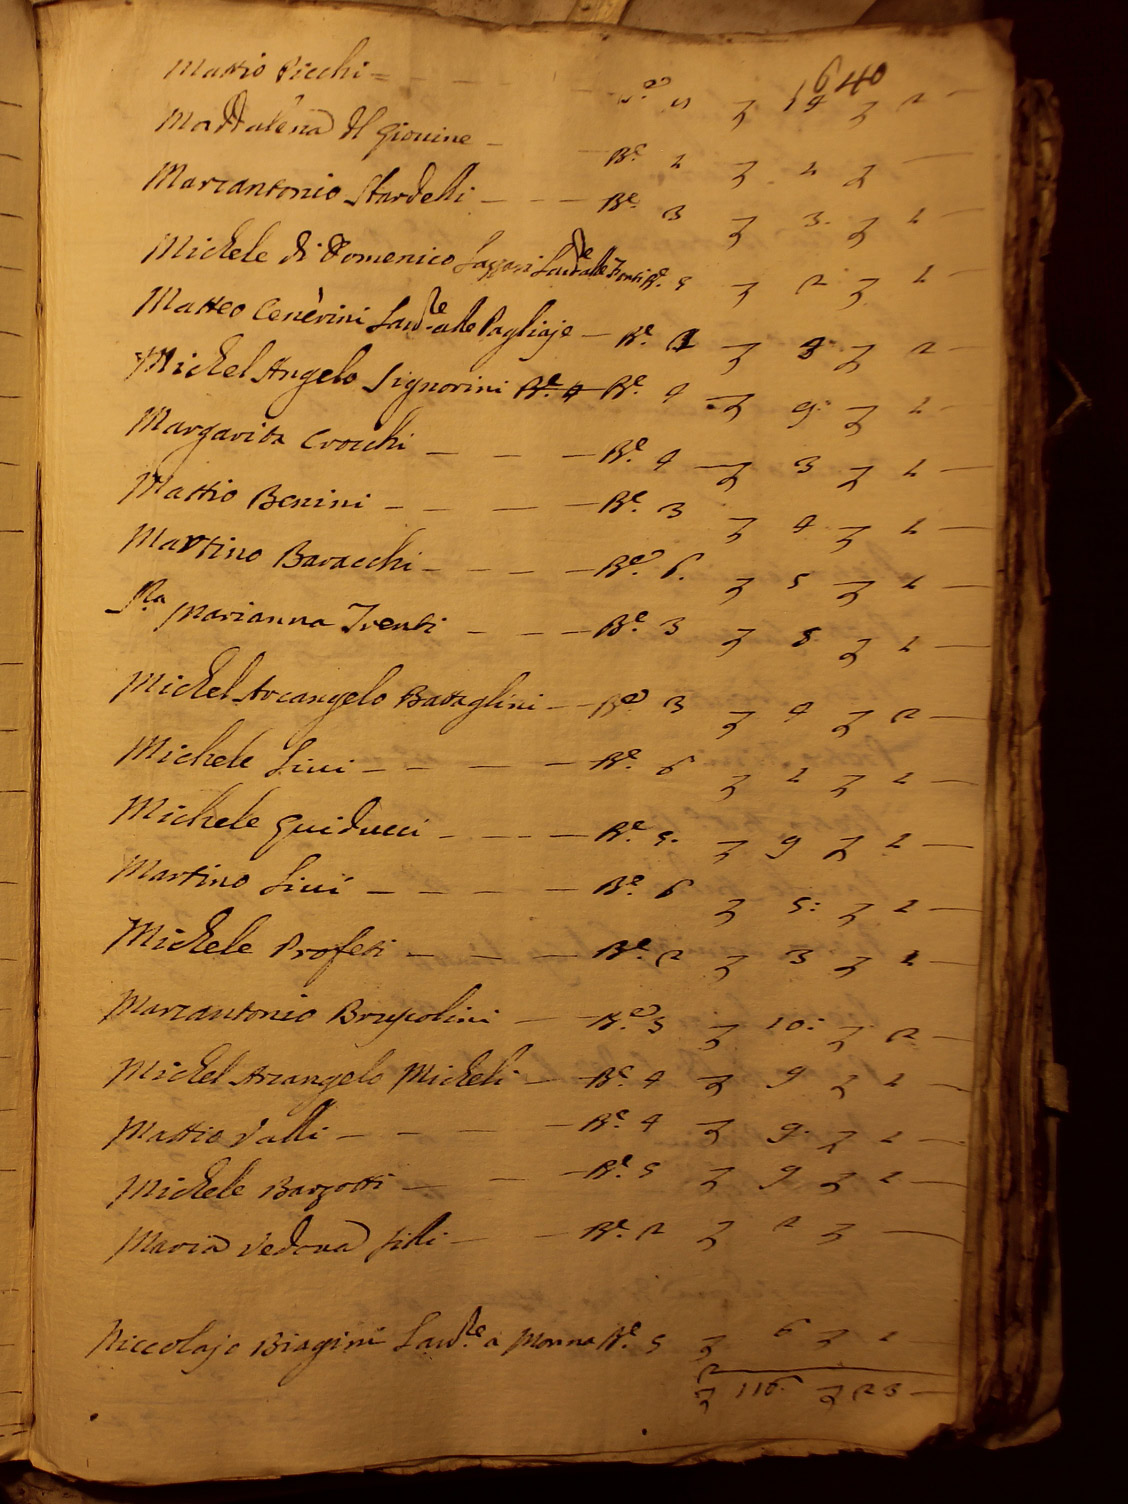 640
Mattio Picchi = B.e 5 14 2
Maddalena del Giovine B.e 2 2
Marcantonio Stardelli B.e 3 3. 2
Michele di Domenico Lazzari Lavd.re alle Fonti B.e 5 2 2
Matteo Cenerini Lav.re alle Pagliaje B.e 1 8 2
Michel Angelo Signorini B.e 4 B.e 4 9: 2
Margarita Crocchi B.e 4 3 2
Mattio Benini B.e 3 4 2
Martino Baracchi B.e 6. 5 2
S.ra Marianna Trenti B.e 3 8 2
Michel Arcangelo Battaglini B.e 3 4 2
Michele Livi B.e 6 2 2
Michele Guiducci B.e 5. 9 2
Martino Livi B.e 6 5: 2
Michele Profeti B.e 2 3 2
Marcantonio B.e 5 10: 2
Michel Arcangelo Micheli B.e 4 9 2
Mattio Valli B.e 4 9. 2
Michele Barzotti B.e 5 9 2
Maria Vedova B.e 2 2
Niccolajo Biagini Lav.re a Monna B.e 5 6 2
116 23